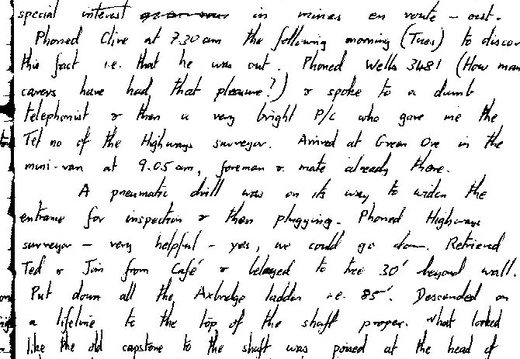 special interest in mines en route - out.
Phoned Clive at 7.30 am the following morning (Tues) to discov
this fact i.e. that he was out. Phoned Wells 3481 (How man
cavers have had that pleasure?) & spoke to a dumb
telephonist & then a very bright P/C who gave me the
Tel no of the Highways surveyor. Arrived at Green Ore in the
mini-van at 9.05 am, foreman & mate already there.
A pneumatic drill was on its way to widen the
entrance for inspection & then plugging. Phoned Highways
surveyor - very helpful - yes, we could go down. Retrieved
Ted & Jim from Café & belayed to tree 30' beyond wall.
Put down all the Axbridge ladder i.e. 85'. Descended on
a lifeline to the top of the shaft proper. What looked
like the old capstone to the shaft was poised at the head of